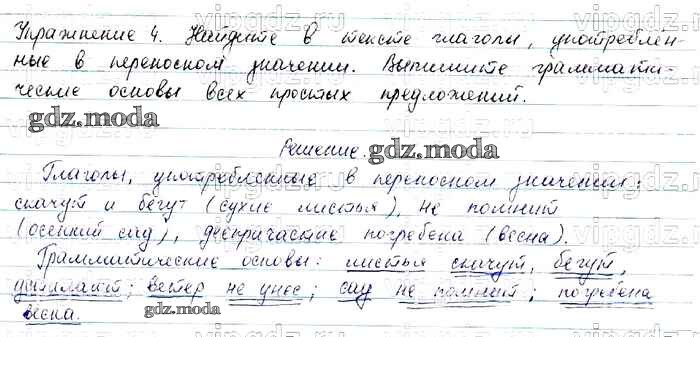 Упражнение 4. Найдите в тексте глаголы, употреблён-
ные в переносном значении. Выпишите граммати-
ческие основы всех простых предложений.
gdz.moda
Решение.
gdz.moda
Глаголы, употребленные в переносном значении:
скачут и бегут (сухие листья), не помнит
(осенний сад), дееричастие погребена (весна).
Грамматические основы: листья скачут, бегут,
; ветер не унес; сад не помнит; погребена
весна.
gdz.moda